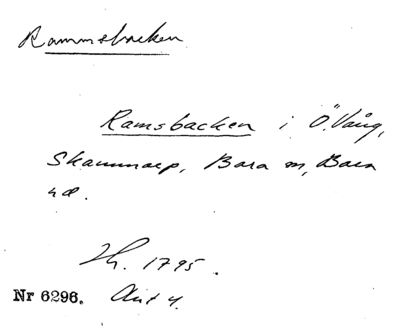 Rammsbacken
Ramsbacken i Ö. Vång,
Skamnarp, Bara sn, Bara
hd.
Hh. 1795.
Nr 6296. Akt 4.